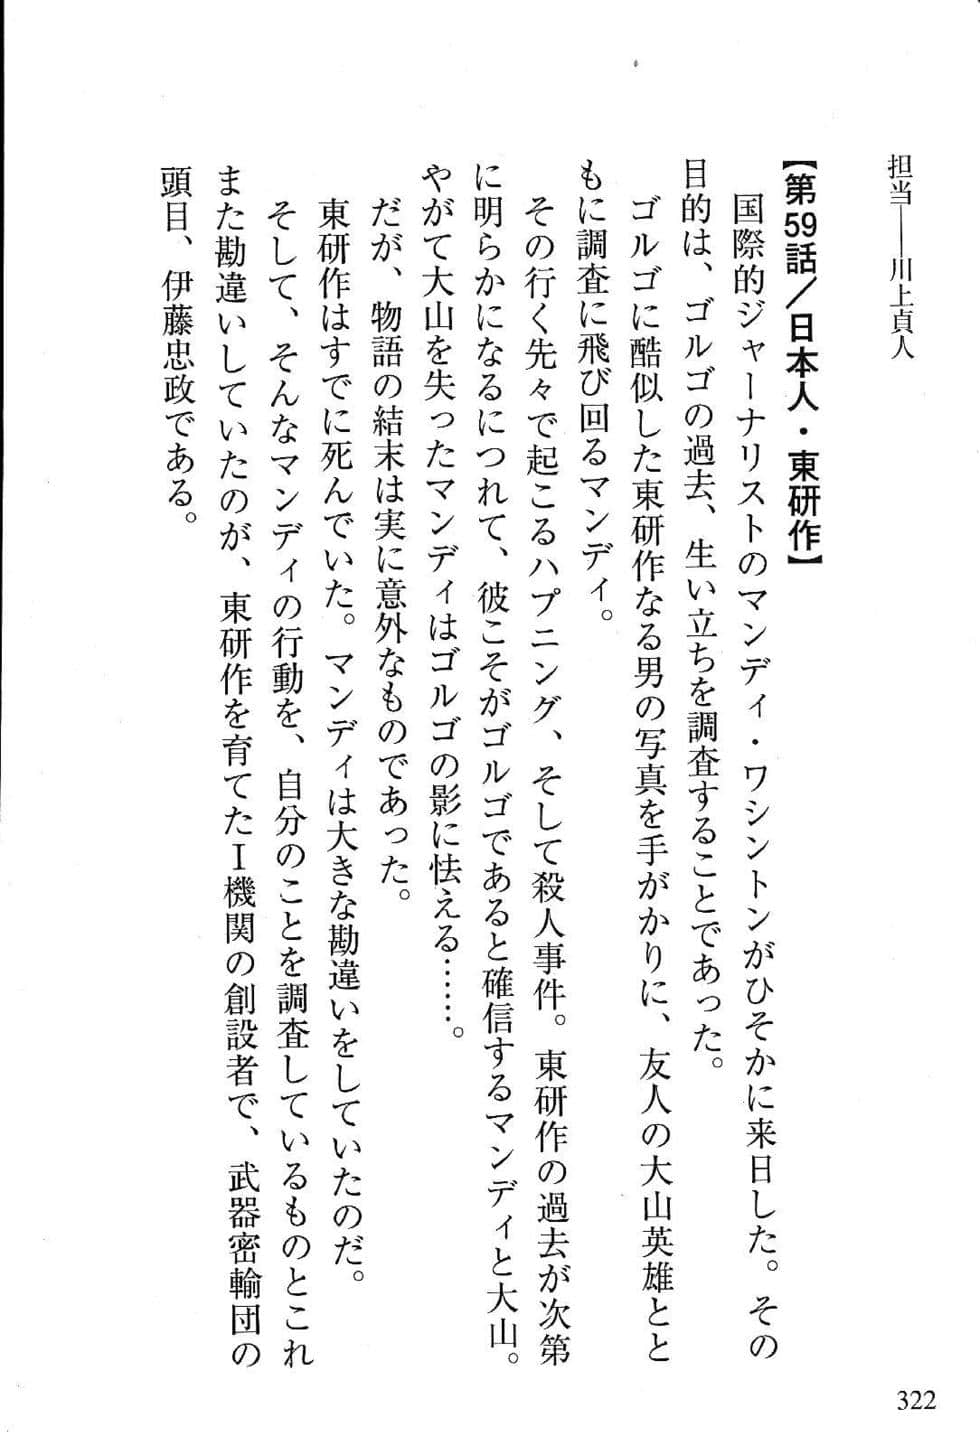 担当――川上貞人
【第59話／日本人・東研作】
国際的ジャーナリストのマンディ・ワシントンがひそかに来日した。その
目的は、ゴルゴの過去、生い立ちを調査することであった。
ゴルゴに酷似した東研作なる男の写真を手がかりに、友人の大山英雄とと
もに調査に飛び回るマンディ。
その行く先々で起こるハプニング、そして殺人事件。東研作の過去が次第
に明らかになるにつれて、彼こそがゴルゴであると確信するマンディと大山。
やがて大山を失ったマンディはゴルゴの影に怯える……。
だが、物語の結末は実に意外なものであった。
東研作はすでに死んでいた。マンディは大きな勘違いをしていたのだ。
そして、そんなマンディの行動を、自分のことを調査しているものとこれ
また勘違いしていたのが、東研作を育てたＩ機関の創設者で、武器密輸団の
頭目、伊藤忠政である。
322